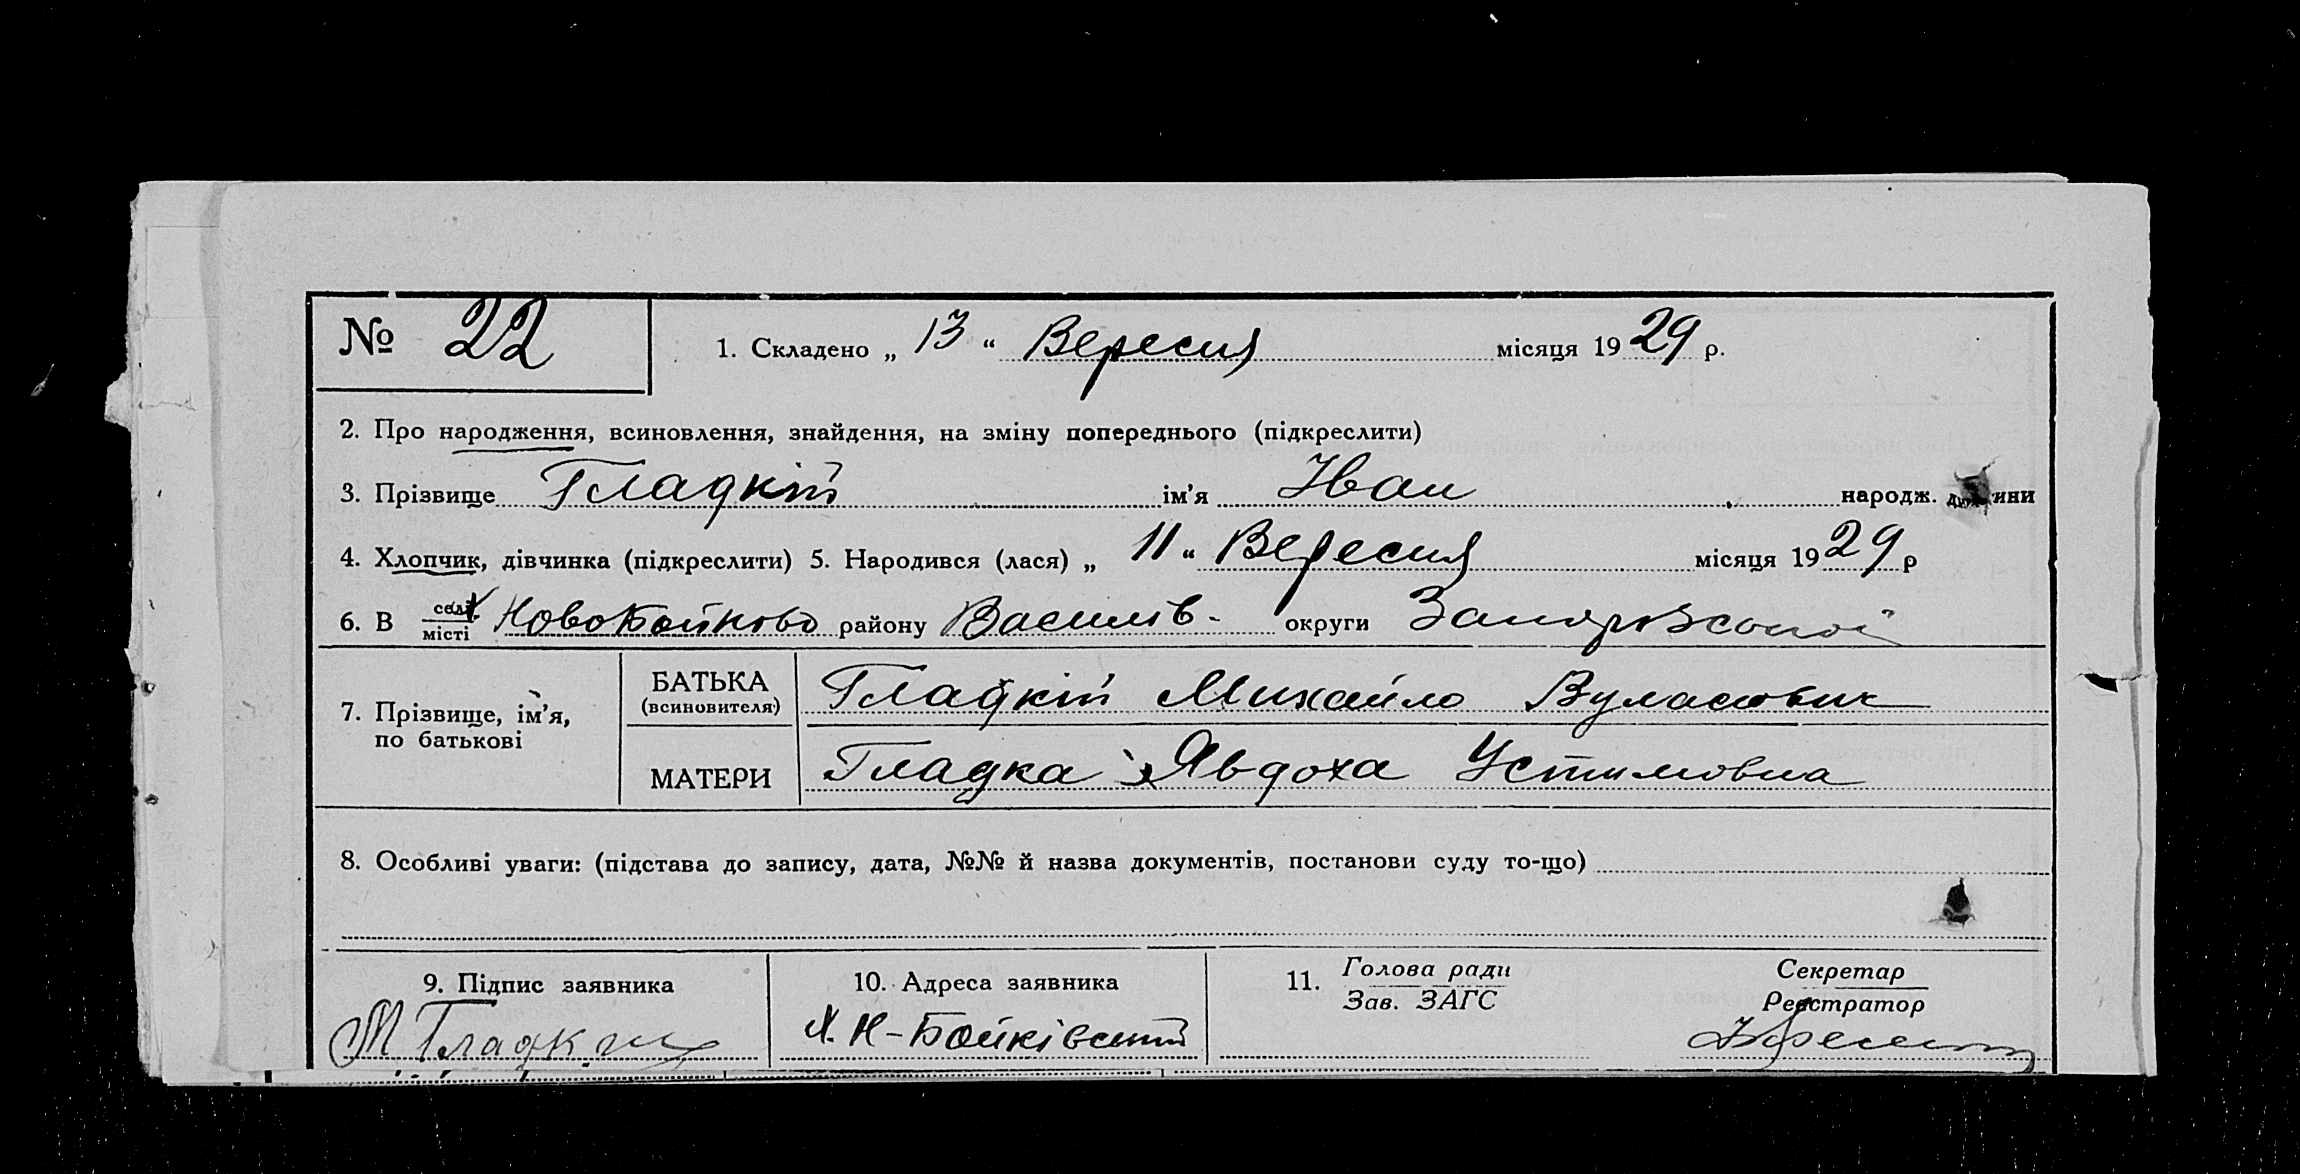 № 22 1. Складено „ 13 “ Вересня місяця 1929 р.
2. Про народження, всиновлення, знайдення, на зміну попереднього (підкреслити)
3. Прізвище Гладкій ім’я Иван народж. дитини
4. Хлопчик, дівчинка (підкреслити) 5. Народився (лася) „ 11 “ Вересня місяця 1929 р
6. В селі місті Новобойково району Василів- округи
7. Прізвище, ім’я, по батькові
БАТЬКА (всиновителя) Гладкій Михайло
МАТЕРИ Гладка Явдоха Устимовна
8. Особливі уваги: (підстава до запису, дата, №№ й назва документів, постанови суду то-що)
9. Підпис заявника 10. Адреса заявника 11. Голова ради Секретар
Зав. ЗАГС Реєстратор
М Гладкий Х. Н-Бойківський